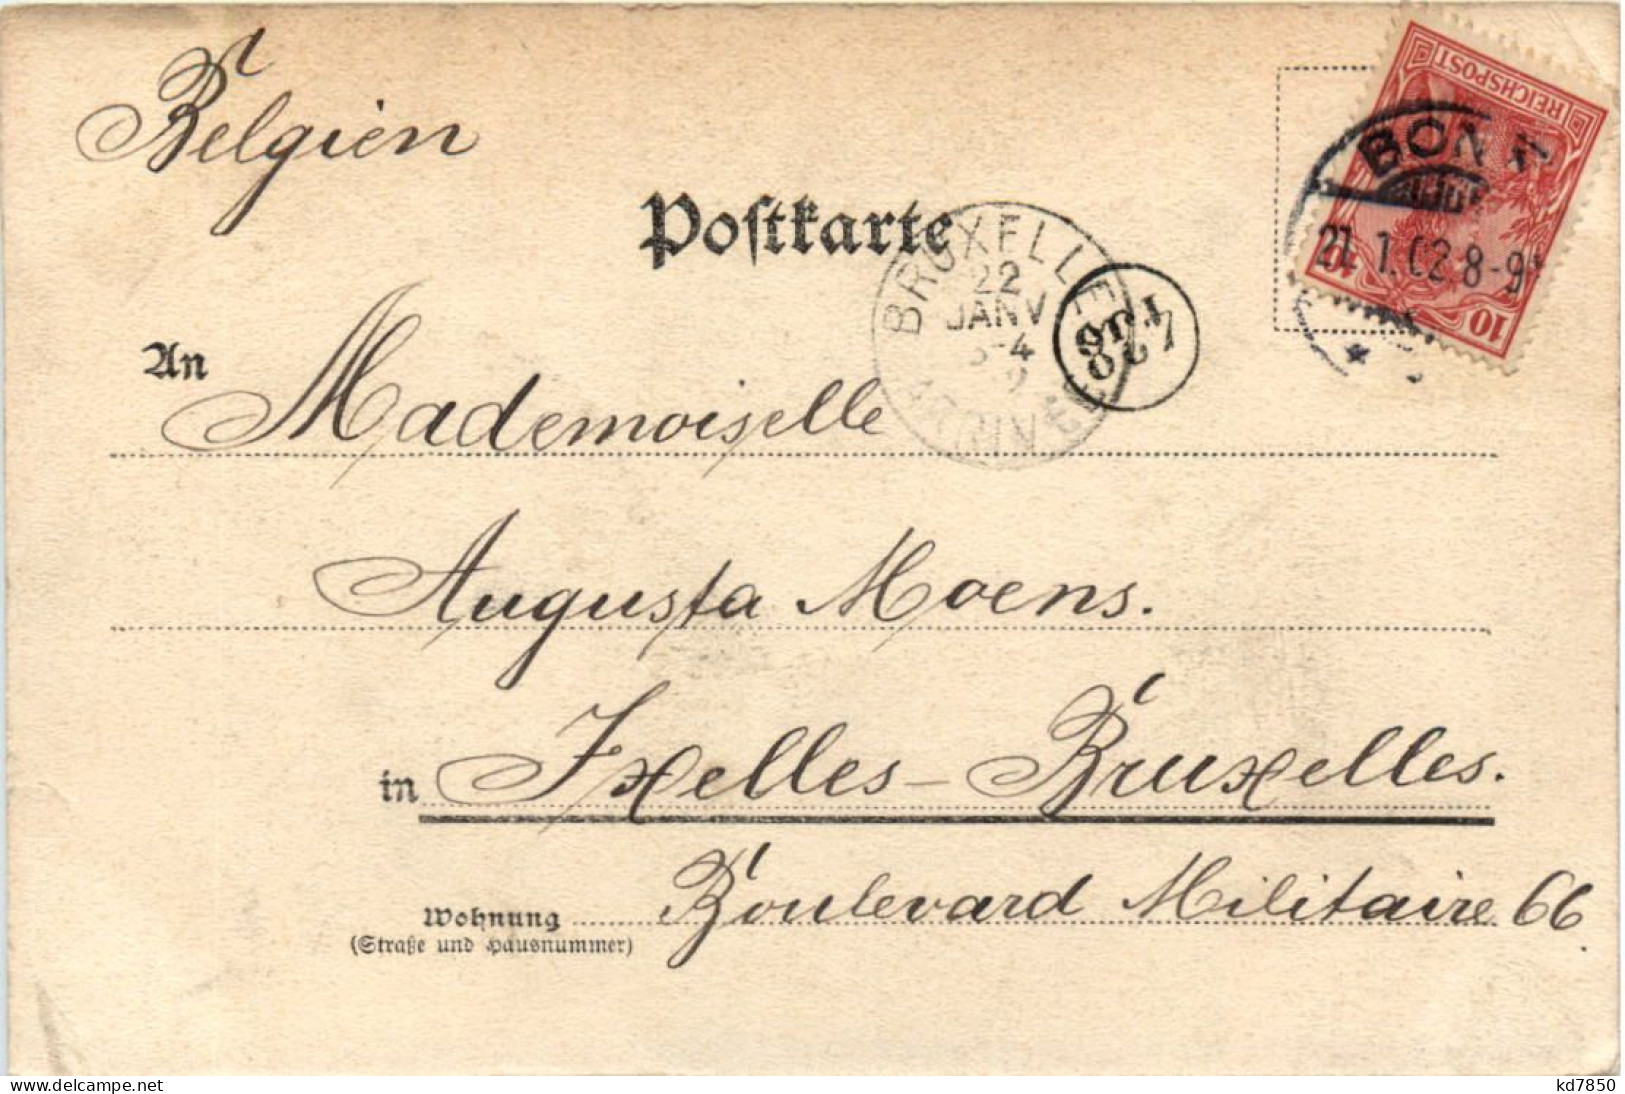 Belgien
REICHSPOST
10
BONN
1.02.8-9
Postkarte
BRUXELLE
22
JANV
ARRIVEE
An Mademoiselle
Augusta Moens.
in Ixelles-Bruxelles.
Wohnung Boulevard Militaire 66.
(Straße und Hausnummer)
kd7850